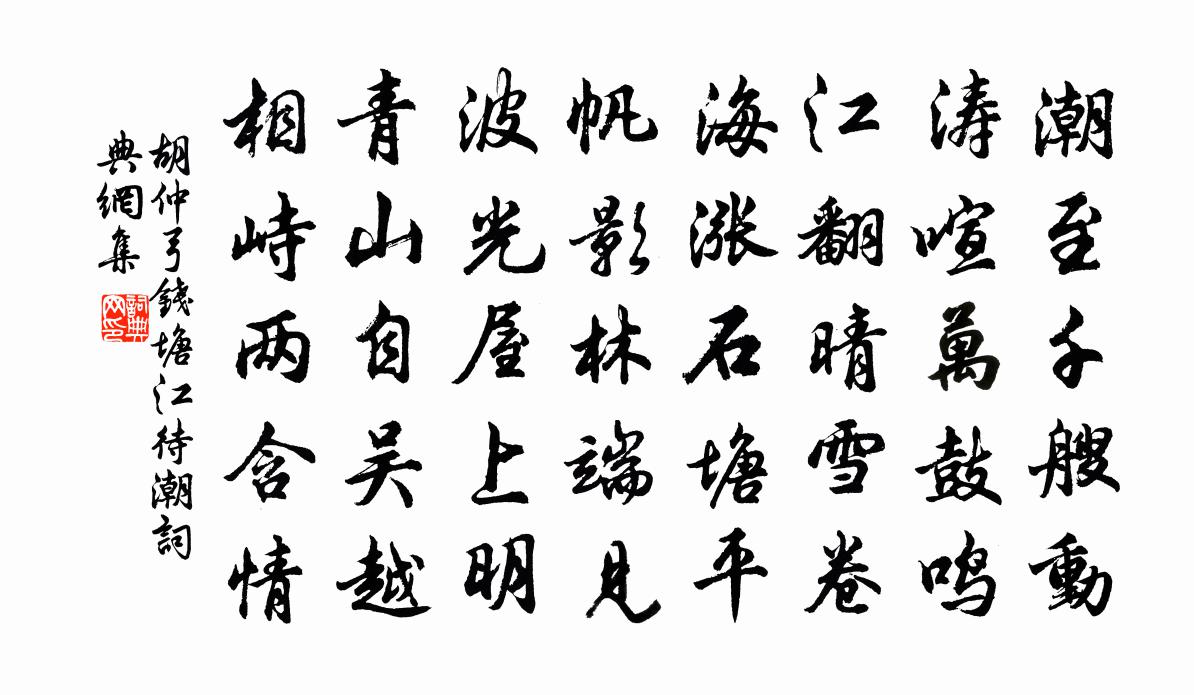 潮至千艘動
濤喧萬鼓鳴
江翻晴雪卷
海漲石塘平
帆影林端見
波光屋上明
青山自吴越
相峙两含情
胡仲弓錢塘江待潮詞
典網集
詞典
网印